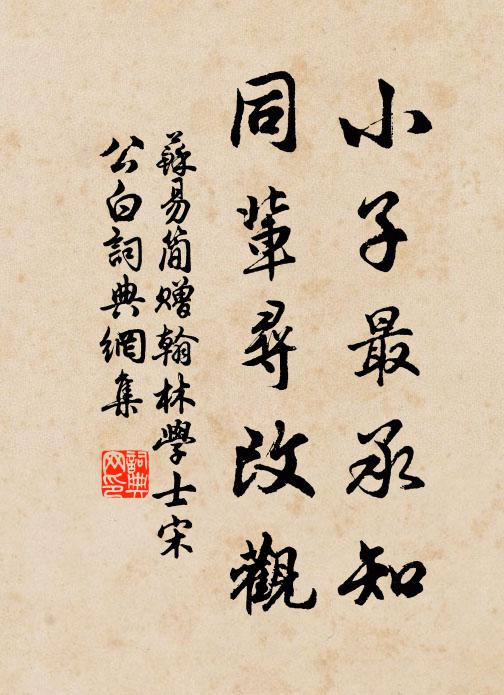 小子最承知
同輩尋改觀
蘇易簡贈翰林學士宋
公白詞典網集
詞典
网印